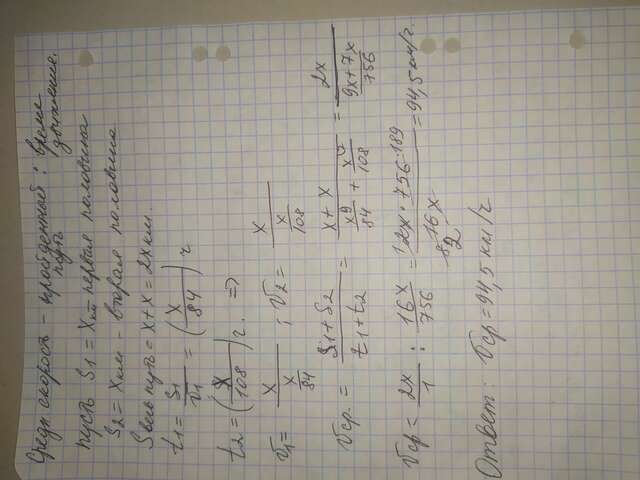 Средн скорость - пройденный путь : время движения.
пусть S1 = X км первая половина
S2 = X км - вторая половина
S весь путь = x+x = 2x км.
t1 = S1/v1 = (x/84) ч
t2 = (x/108) ч. =>
v1 = x / (x/84) ; v2 = x / (x/108)
vср. = (S1+S2)/(t1+t2) = (x+x)/(x9/84 + x7/108) = 2x/((9x+7x)/756)
vср = 2x/1 : 16x/756 = 2x·756 189/16x 8 2 = 94,5 км/ч.
Ответ: vср = 94,5 км/ч